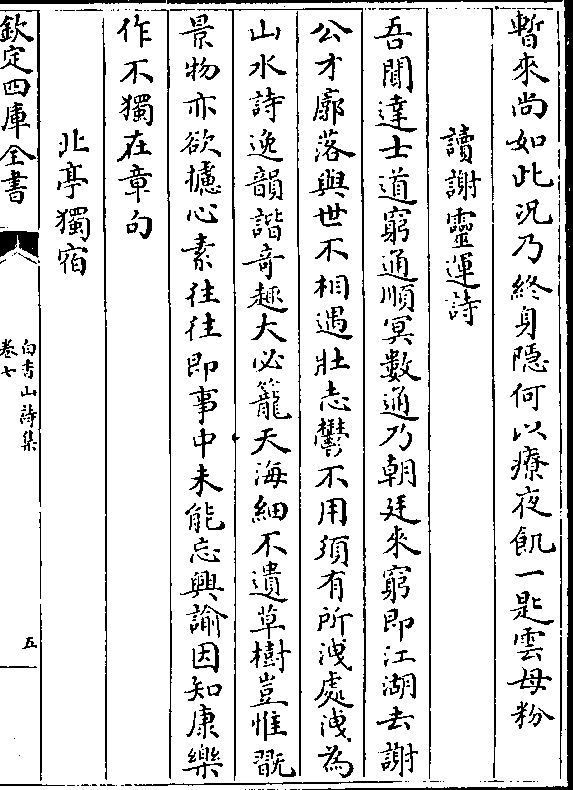 暫來尚如此况乃終身隱何以療夜飢一匙雲母粉
讀謝靈運詩
吾聞達士道窮通順冥數通乃朝廷來窮即江湖去謝
公才廓落與世不相遇壯志鬱不用須有所洩處洩為
山水詩逸韻諧奇趣大必籠天海細不遺草樹豈惟翫
景物亦欲攄心素往往即事中未能忘興諭因知康樂
作不獨在章句
北亭獨宿
欽定四庫全書
白香山詩集
卷七
五